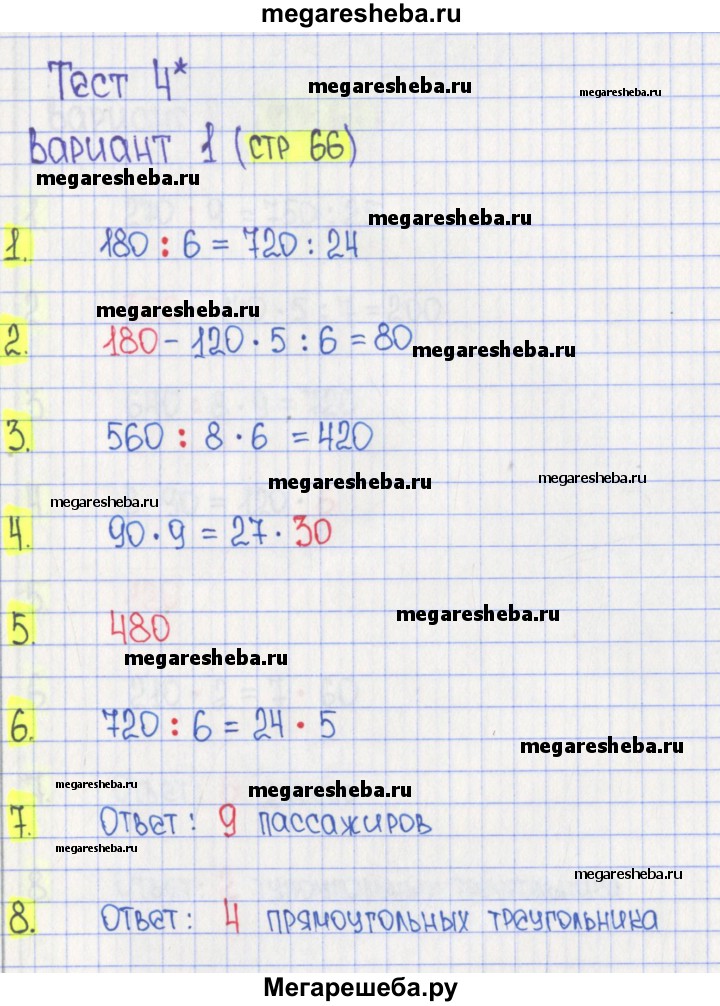 megaresheba.ru
Тест 4*
megaresheba.ru
megaresheba.ru
Вариант 1 (стр 66)
megaresheba.ru
megaresheba.ru
1. 180 : 6 = 720 : 24
megaresheba.ru
megaresheba.ru
2. 180 - 120 · 5 : 6 = 80
megaresheba.ru
3. 560 : 8 · 6 = 420
megaresheba.ru
megaresheba.ru
megaresheba.ru
4. 90 · 9 = 27 · 30
megaresheba.ru
5. 480
megaresheba.ru
megaresheba.ru
6. 720 : 6 = 24 · 5
megaresheba.ru
megaresheba.ru
megaresheba.ru
7. Ответ: 9 пассажиров
megaresheba.ru
megaresheba.ru
8. Ответ: 4 прямоугольных треугольника
Мегарешеба.ру